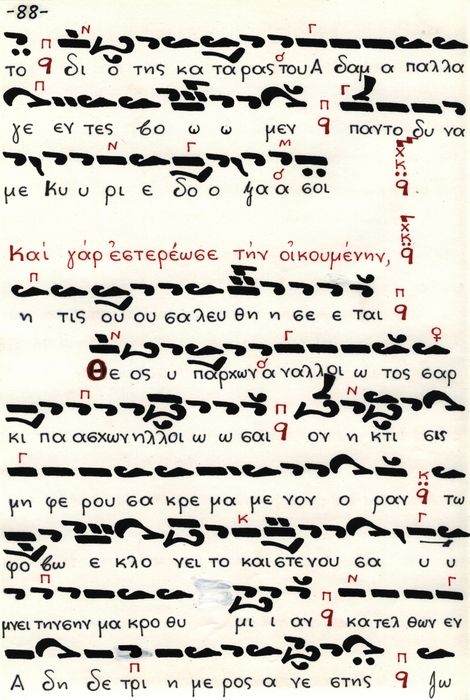 -88-
το δι ο της κα τα ρας του Α δαμ α παλλα
γε εν τες βο ω ω μεν παντο δυ να
με Κυ υ ρι ε δο ο ξα α σοι
Καί γάρ ἐστερέωσε τήν οἰκουμένην,
η τις ου ου σαλευ θη η σε ε ται
Θε ος υ παρχων α ναλλοι ω τος σαρ
κι πα ασχων ηλλοι ω ω σαι ον η κτι σις
μη φε ρου σα κρε μα με νον ο ραν τω
φο βω ε κλο νει το και στε νου σα υ υ
μνει την σην μα κρο θυ μι ι αν κα τελ θων εν
Α δη δε τρι η με ρος α νε στης ζω